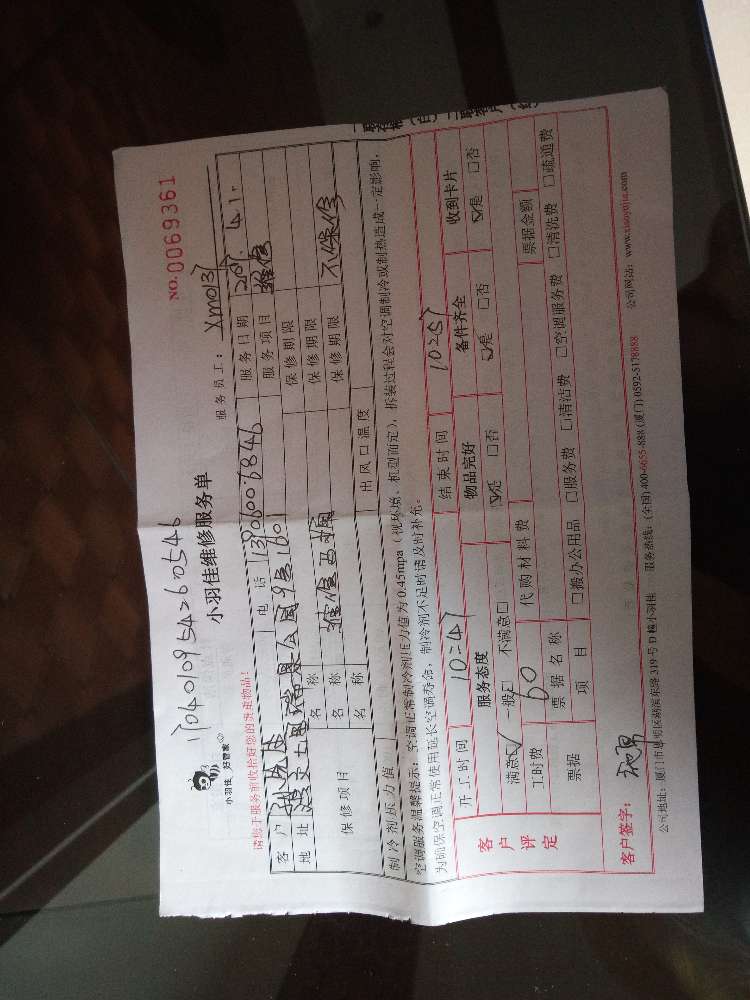 NO.0069361
1704010954260546
小羽佳 好管家
小羽佳维修服务单
服务员工： Xm0137
请您于服务前收拾好您的贵重物品！
客户 电话 13906006846 服务日期 2017.4.1.
地址 瑞景公园9号1601 服务项目 维修
保修项目
名称 保修期限
名称 维修马桶 保修期限
名称 保修期限 不保修
制冷剂压力值 出风口温度
空调服务温馨提示：空调正常制冷剂压力值为0.45mpa（视环境、机型而定），拆装过程会对空调制冷或制热造成一定影响，
为确保空调正常使用延长空调寿命，制冷剂不足时请及时补充。
客户评定
开工时间 10:47 结束时间 10:57
服务态度 物品完好 备件齐全 收到卡片
满意☑ 一般□ 不满意□ ☑是 □否 ☑是 □否 ☑是 □否
工时费 60 代购材料费
票据 票据名称 票据金额
项目 □搬办公用品 □服务费 □清洁费 □空调服务费 □清洗费 □疏通费
客户签字：
公司地址：厦门市思明区湖滨东路319号D幢小羽佳 服务热线：(全国)400-6655-888 (厦门)0592-5178888 公司网站：www.xiaoyujia.com